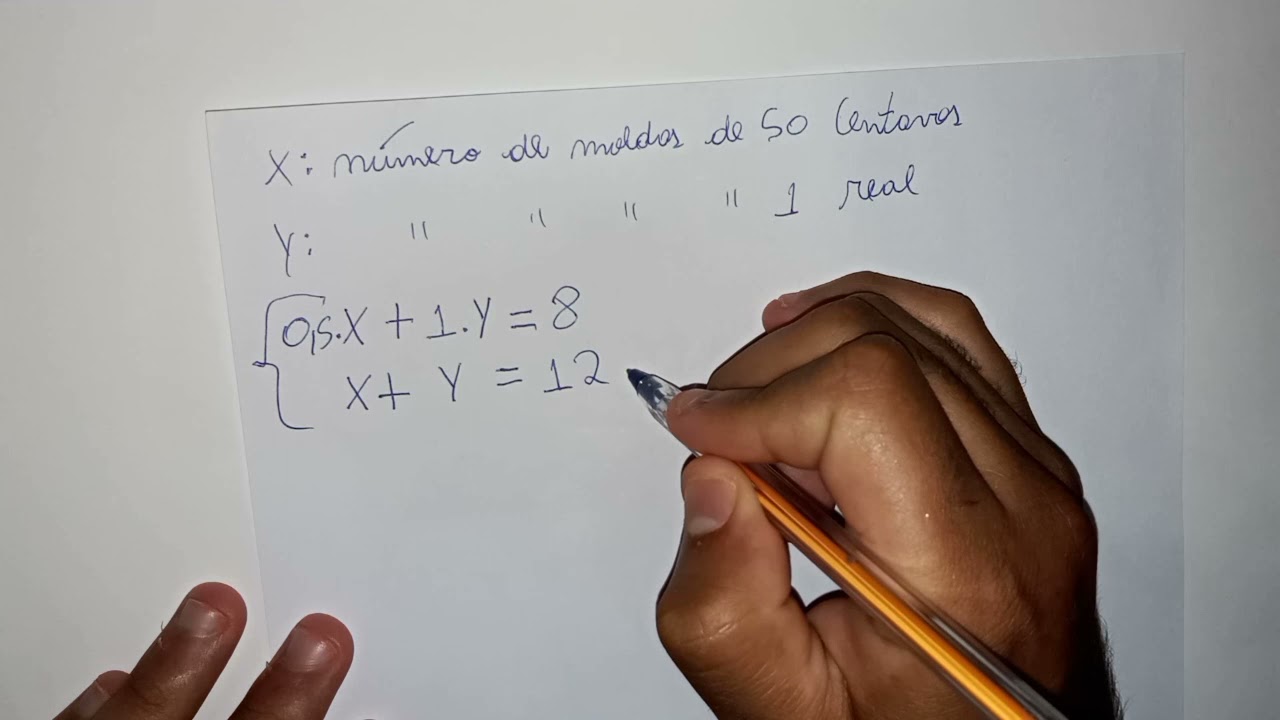 X: número de moedas de 50 Centavos
Y: " " " " 1 real
0,5.X + 1.Y = 8
X + Y = 12